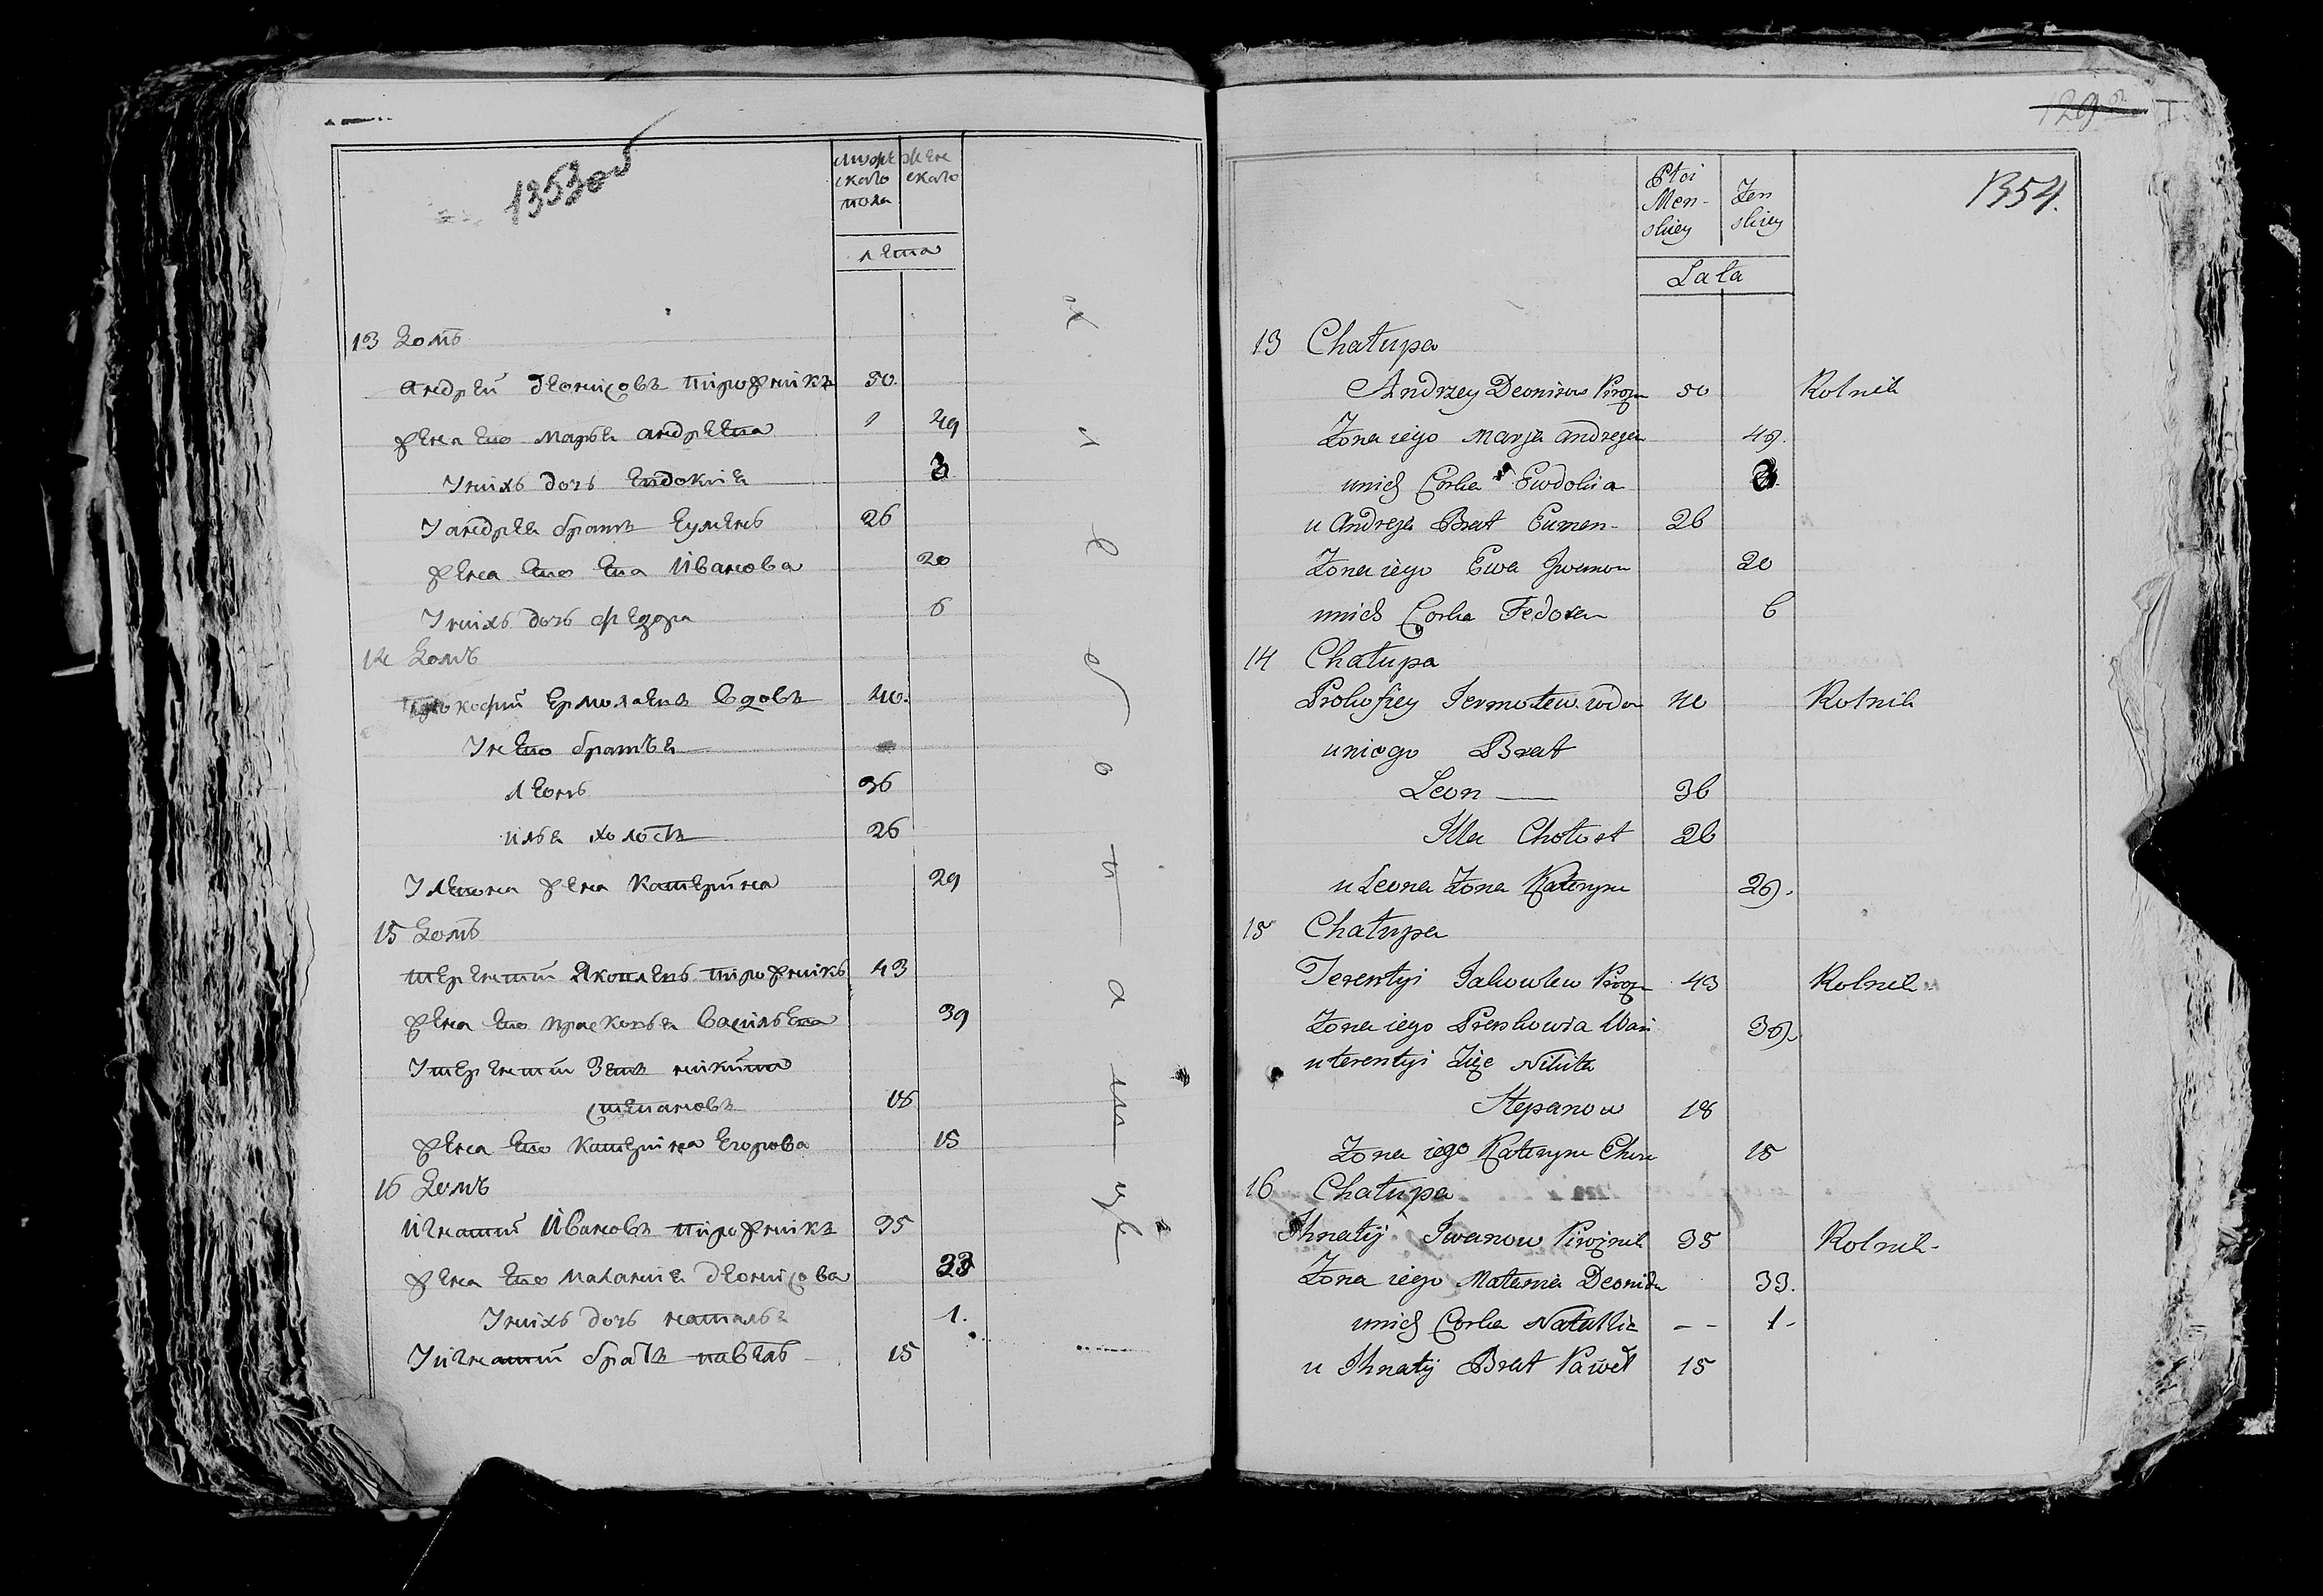 1353
муже
скаго
пола
жене
скаго
лета
13 Домъ
андрей деонисовъ пирожникъ 50
жена ево марья андреева 49
У нихъ дочь евдокия 3
У андрея братъ еуменъ 26
жена ево ева иванова 20
У нихъ дочь федора 6
14 Домъ
прокофий ермолаевъ вдовъ 40
У нево братья
леонъ 36
илья холостъ 26
У левона жена катерина 29
15 Домъ
терентий яковлевъ пирожникъ 43
жена ево прасковья васильева 39
У терентия зять никита
степановъ 18
жена ево катерина егорова 15
16 Домъ
игнатий ивановъ пирожникъ 35
жена ево малания деонисова 33
У нихъ дочь наталья 1.
У игнатия братъ павелъ 15
1354.
Płci
Men-
skiey
Zen
skiey
Lata
13 Chałupa
Andrzey Deonisow Pirozn 50 Rolnik
Zona iego Marja andreja 49.
unich Corka Ewdokia 3
u Andreja Brat Eumen- 26
Zona iego Ewa Iwanow 20
unich Corka Fedora 6
14 Chałupa
Prokofiey Jermołew wdow 40 Rolnik
uniego Brat
Leon 36
Ilia Chołost 26
u Leona Zona Kateryna 29.
15 Chałupa
Terentyi Jakowlew Pirozn 43 Rolnik
Zona iego Praskowia Wasi 39.
u terentyi Zięć Nikita
Stepanow 18
Zona iego Kateryna 15
16 Chałupa
Ihnatij Iwanow Piroznik 35 Rolnik-
Zona iego Małania Deonido 33.
unich Corka Natallia -- 1-
u Ihnatij Brat Paweł 15